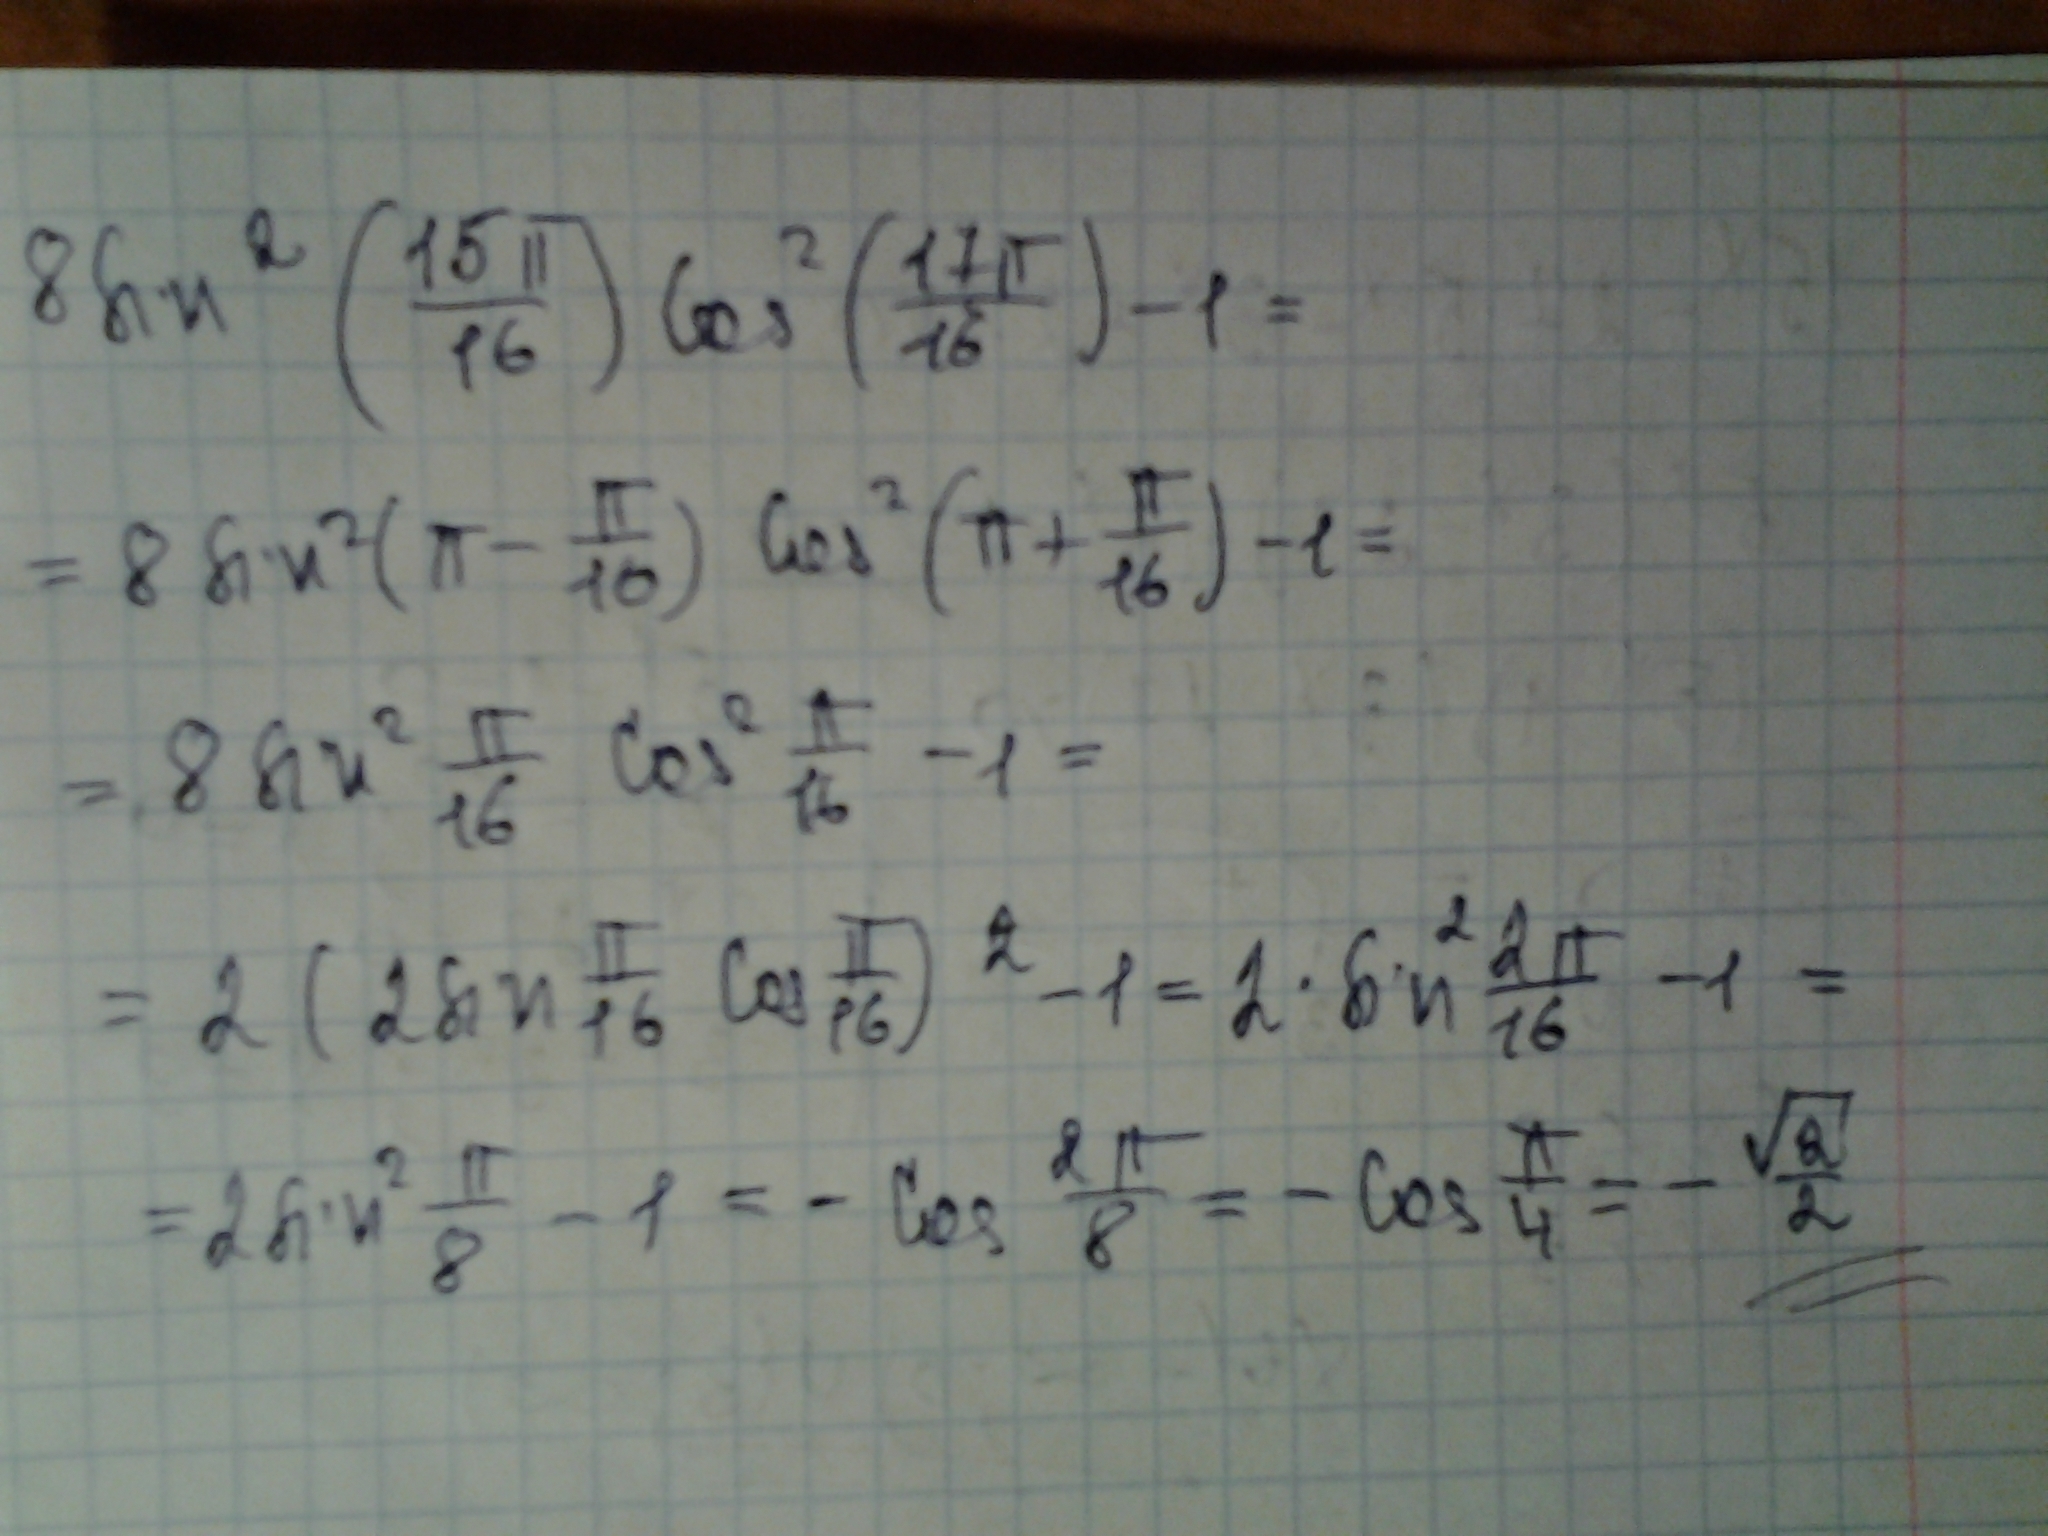 8 sin² (15π/16) cos² (17π/16) − 1 =
= 8 sin² (π − π/10) cos² (π + π/16) − 1 =
= 8 sin² π/16 cos² π/16 − 1 =
= 2 (2 sin π/16 cos π/16)² − 1 = 2 · sin² 2π/16 − 1 =
= 2 sin² π/8 − 1 = − cos 2π/8 = − cos π/4 = − √2/2